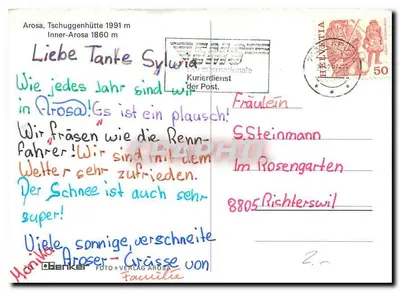 Arosa, Tschuggenhütte 1991 m
Inner-Arosa 1860 m
Liebe Tante Sylvia
Wie jedes Jahr sind wir
in Arosa! Es ist ein plausch!
Wir "fräsen" wie die Renn-
fahrer! Wir sind mit dem
Wetter sehr zufrieden.
Der Schnee ist auch sehr
super!
Viele sonnige, verschneite
Aroser-Grüsse von
Monika
Familie
FOTO + VERLAG AROSA
Kurierdienst
der Post.
HELVETIA
50
Fräulein
S. Steinmann
Im Rosengarten
8805 Richterswil
2.-